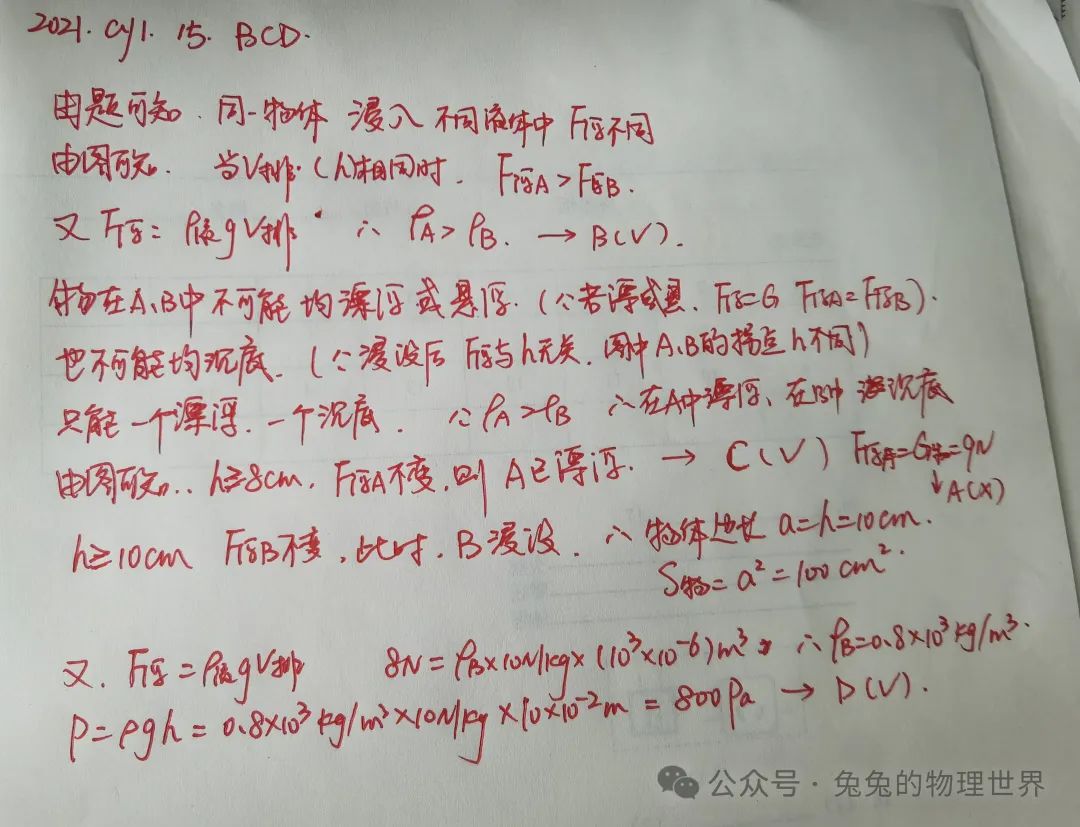 2021. cy1. 15. BCD.
由题可知. 同一物体 浸入 不同液体中 F浮不同
由图可知. 当V排(h)相同时. F浮A>F浮B.
又 F浮=ρ液gV排 ∴ ρA>ρB. → B(√).
物在A、B中不可能均漂浮或悬浮. (∵若漂或悬. F浮=G F浮A=F浮B).
也不可能均沉底. (∵浸没后 F浮与h无关. 图中A、B的拐点h不同)
只能一个漂浮. 一个沉底. ∵ρA>ρB ∴在A中漂浮、在B中 沉底
由图可知.. h≥8cm. F浮A不变. 则 A已漂浮. → C(√) F浮A=G物=9N
↓A(×)
h≥10cm F浮B不变. 此时. B浸没. ∴物体边长 a=h=10cm.
S物=a²=100cm².
又. F浮=ρ液gV排 8N=ρB×10N/kg×(10³×10⁻⁶)m³ ∴ρB=0.8×10³kg/m³.
P=ρgh=0.8×10³kg/m³×10N/kg×10×10⁻²m=800Pa → D(√).
公众号·兔兔的物理世界